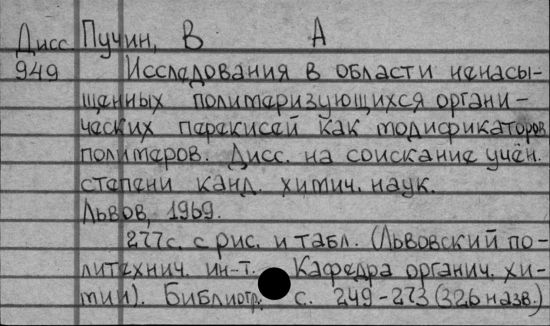 Дисс. Пучин, В А
949 Исследования в области ненасы-
щенных полимеризующихся органи-
ческих перекисей как модификаторов
полимеров. Дисс. на соискание учен.
степени канд. химич. наук.
Львов, 1969.
277с. с рис. и табл. (Львовский по-
литехнич. ин-т. Кафедра органич. хи-
мии). Библиогр. с. 249-273 (326 назв.)